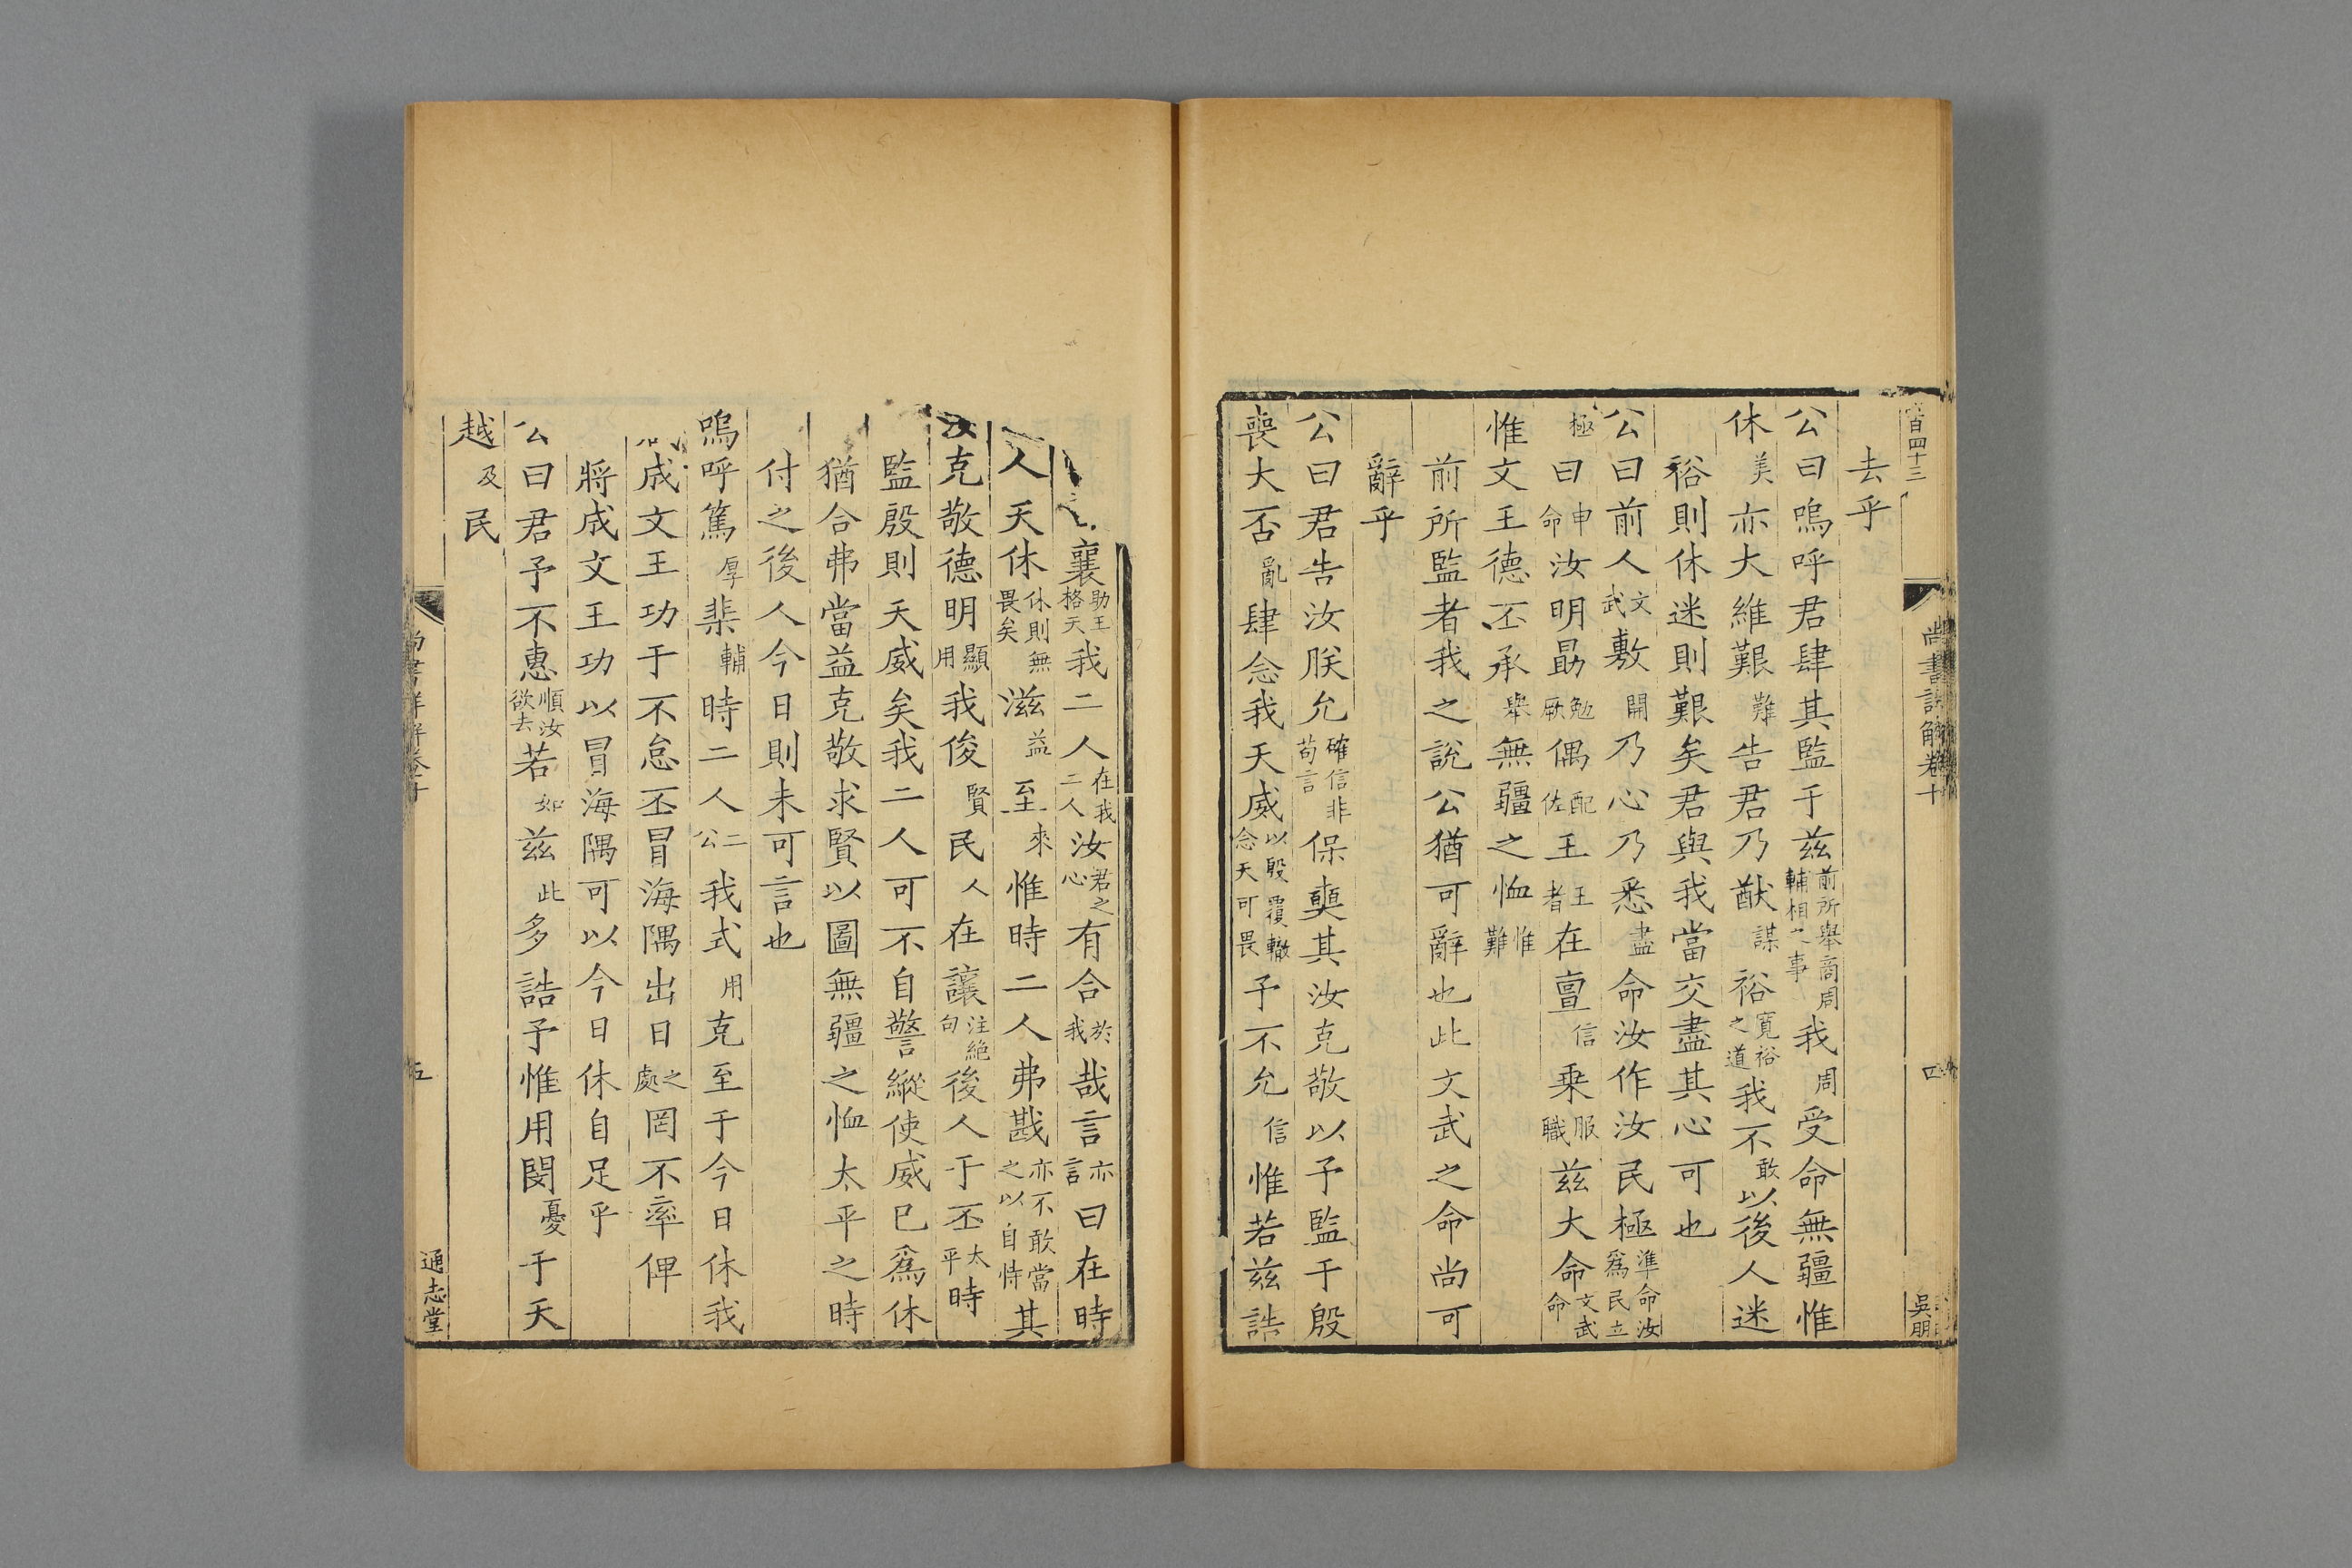 百四十三
尚書詳解卷十
四
吳明
去乎
公曰嗚呼君肆其監于兹前所舉商周輔相之事我周受命無疆惟
休美亦大維艱難告君乃猷謀裕寬裕之道我不敢以後人迷
裕則休迷則艱矣君與我當交盡其心可也
公曰前人文武敷開乃心乃悉盡命汝作汝民極準命汝爲民立
極曰申命汝明勗勉厥偶配佐王王者在亶信乘服職兹大命文武命
惟文王德丕承舉無疆之恤惟難
前所監者我之說公猶可辭也此文武之命尚可
辭乎
公曰君告汝朕允確信非苟言保奭其汝克敬以予監于殷
喪大否亂肆念我天威以殷覆轍念天可畏予不允信惟若兹誥
襄助王格天我二人在我二人汝君之心有合於我哉言亦言曰在時
人天休休則無畏矣滋益至來惟時二人弗戡亦不敢當之以自恃其
汝克敬德明顯用我俊賢民人在讓注絕句後人于丕太平時
監殷則天威矣我二人可不自警縱使威已爲休
猶合弗當益克敬求賢以圖無疆之恤太平之時
付之後人今日則未可言也
嗚呼篤厚棐輔時二人二公我式用克至于今日休我
咸成文王功于不怠丕冒海隅出日之處罔不率俾
將成文王功以冒海隅可以今日休自足乎
公曰君予不惠順汝欲去若如兹此多誥予惟用閔憂于天
越及民
尚書詳解卷十
五
通志堂